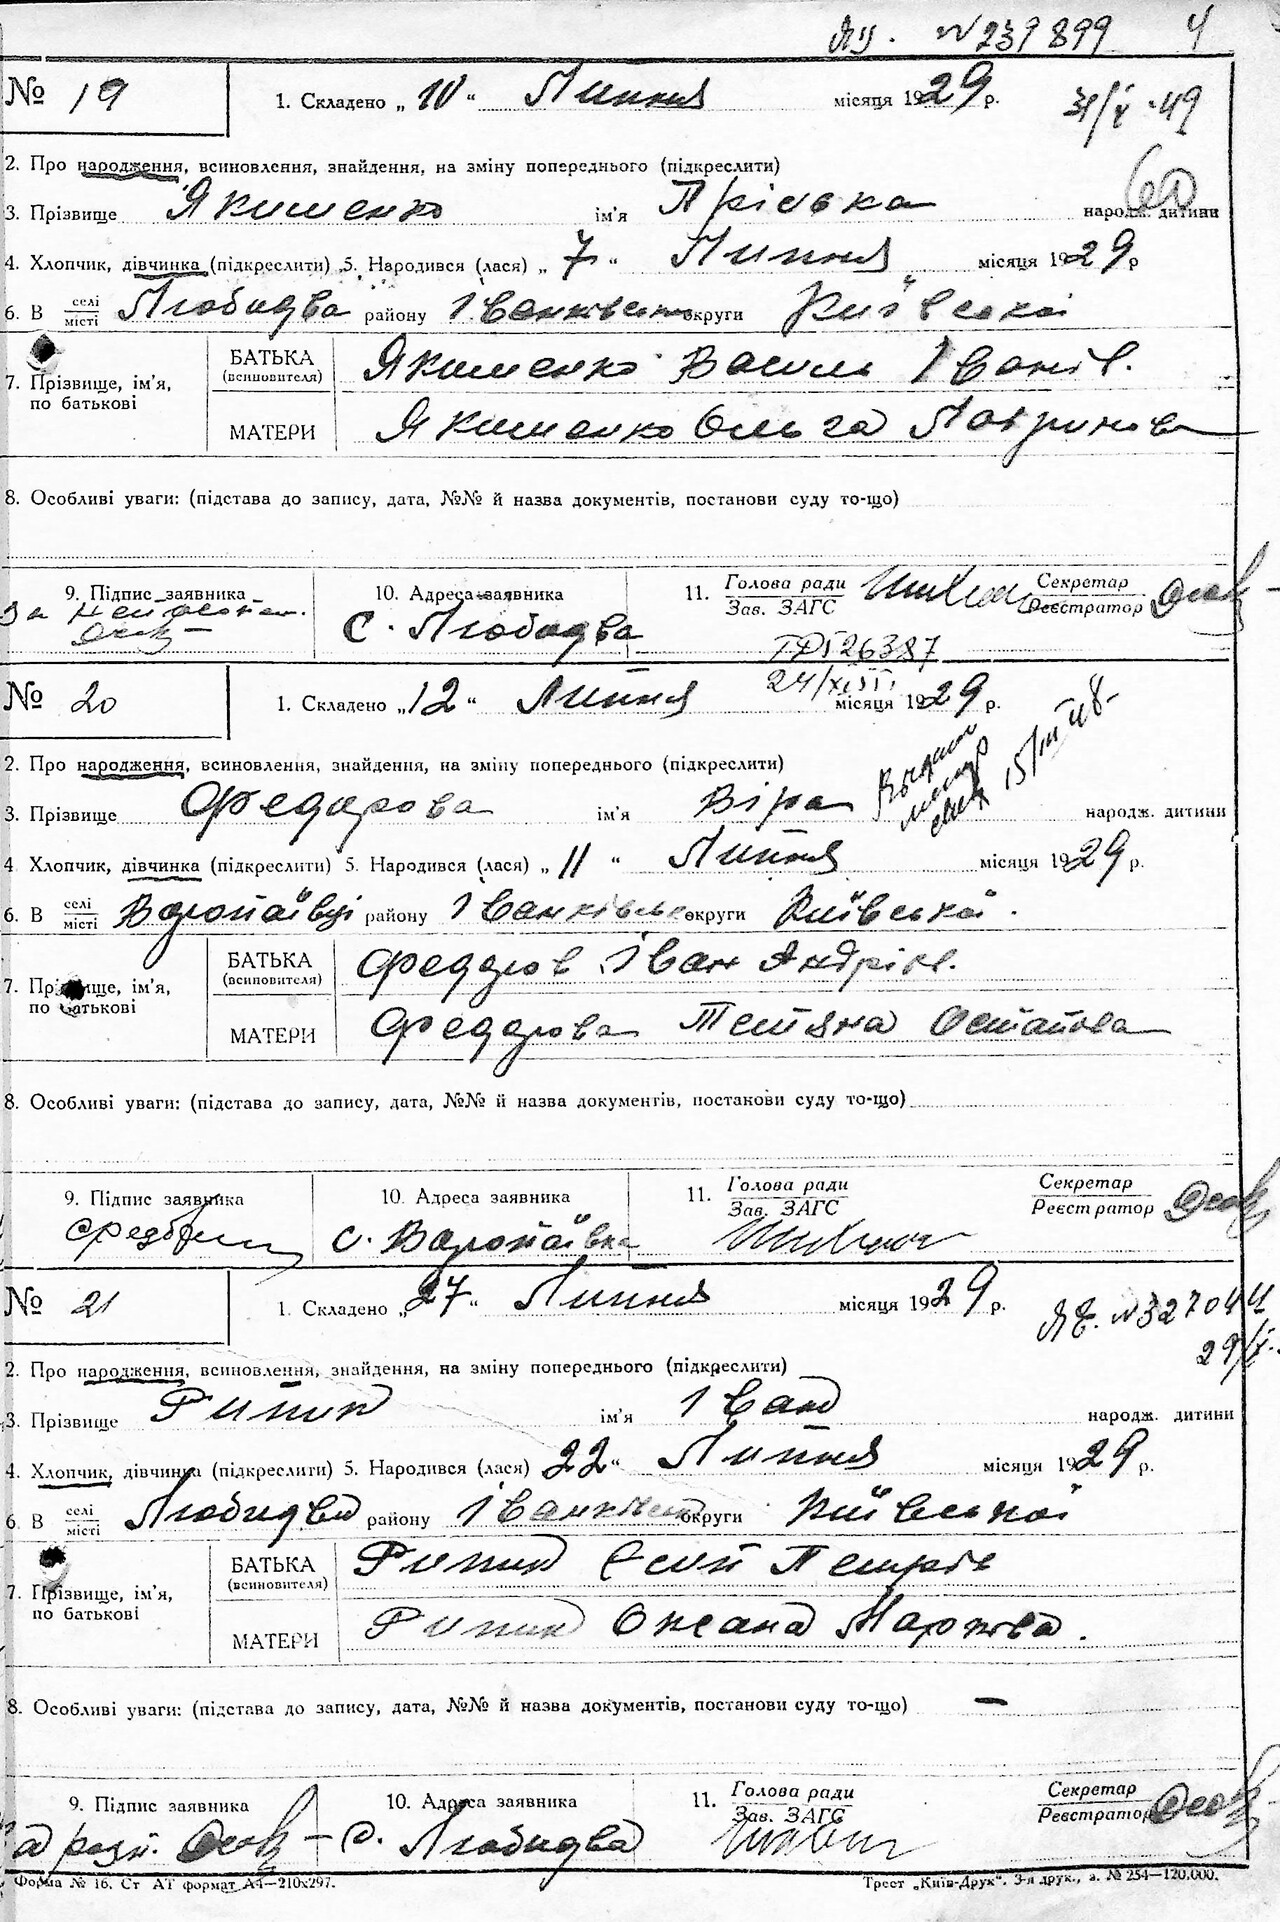 ЯЦ. № 239899 4
№ 19 1. Складено „10“ Липня місяця 1929 р.
31/X-49
2. Про народження, всиновлення, знайдення, на зміну попереднього (підкреслити)
3. Прізвище Якименко ім'я Пріська народж. дитини
4. Хлопчик, дівчинка (підкреслити) 5. Народився (лася) „7“ Липня місяця 1929 р
6. В селі/місті Любидва району Іванківськ округи Київської
7. Прізвище, ім'я, по батькові
БАТЬКА (всиновителя) Якименко Василь Іванів.
МАТЕРИ Якименко Ольга Лавринова
8. Особливі уваги: (підстава до запису, дата, №№ й назва документів, постанови суду то-що)
9. Підпис заявника 10. Адреса заявника 11. Голова ради/Зав. ЗАГС Секретар/Реєстратор
За с. Любидва
26387
№ 20 1. Складено „12“ Липня місяця 1929 р.
15/III 48
2. Про народження, всиновлення, знайдення, на зміну попереднього (підкреслити)
3. Прізвище Федорова ім'я Віра народж. дитини
4 Хлопчик, дівчинка (підкреслити) 5. Народився (лася) „11“ Липня місяця 1929 р.
6. В селі/місті Воропаївці району Іванківськ округи Київської.
7. Прізвище, ім'я, по батькові
БАТЬКА (всиновителя) Федоров Іван Андрієв.
МАТЕРИ Федорова Тетяна Остапова
8. Особливі уваги: (підстава до запису, дата, №№ й назва документів, постанови суду то-що)
9. Підпис заявника 10. Адреса заявника 11. Голова ради/Зав. ЗАГС Секретар/Реєстратор
с. Воропаївка
№ 21 1. Складено „27“ Липня місяця 1929 р.
№ 327044
29/X
2. Про народження, всиновлення, знайдення, на зміну попереднього (підкреслити)
3. Прізвище Рипик ім'я Іван народж. дитини
4. Хлопчик, дівчинка (підкреслити) 5. Народився (лася) 22“ Липня місяця 1929 р.
6 В селі/місті Любидва району Іванківськ округи Київської
7. Прізвище, ім'я, по батькові
БАТЬКА (всиновителя) Рипик Петрів
МАТЕРИ Рипик Оксана Маркова.
8. Особливі уваги: (підстава до запису, дата, №№ й назва документів, постанови суду то-що) —
9. Підпис заявника 10. Адреса заявника 11. Голова ради/Зав. ЗАГС Секретар/Реєстратор
с. Любидва
Форма № 16. Ст АТ формат А4—210х297. Трест „Київ-Друк“. 3-я друк., з. № 254—120.000.